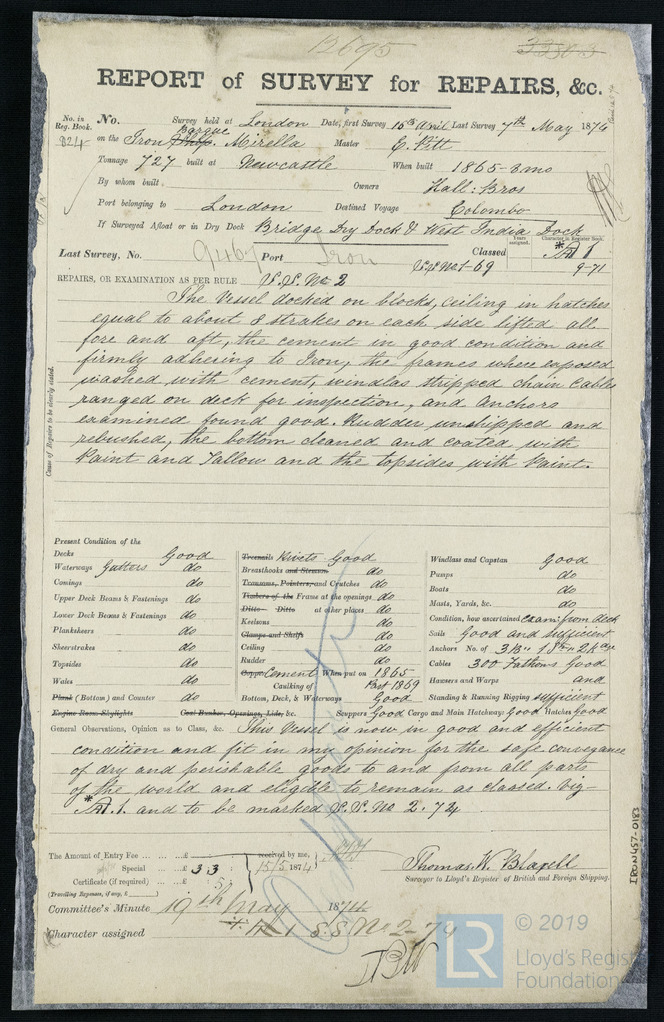 12695
REPORT of SURVEY for REPAIRS, &c.
No. in Reg. Book. No. Survey held at London Date, first Survey 15th April Last Survey 7th May 1874
824 on the Iron Ship Barque Mirella Master C. Pitt
Tonnage 727 built at Newcastle When built 1865-8mo
By whom built Owners Hall: Bros
Port belonging to London Destined Voyage Colombo
If Surveyed Afloat or in Dry Dock Bridge Dry Dock & West India Dock
Last Survey, No. 9467 Port Iron Classed Years assigned. Character in Register Book. *A1
S.S. No 1-69 9-71
REPAIRS, OR EXAMINATION AS PER RULE S.S. No 2
The Vessel docked on blocks, ceiling in hatches
equal to about 8 strakes on each side lifted all
fore and aft, the cement in good condition and
firmly adhering to Iron, the frames where exposed
washed with cement, windlas stripped chain Cables
ranged on deck for inspection, and Anchors
examined found good. Rudder unshipped and
rebushed, the bottom cleaned and coated with
Paint and Tallow and the topsides with Paint.
Cause of Repairs to be clearly stated.
Present Condition of the
Decks Good
Waterways Gutters do
Comings do
Upper Deck Beams & Fastenings do
Lower Deck Beams & Fastenings do
Planksheers do
Sheerstrakes do
Topsides do
Wales do
Plank (Bottom) and Counter do
Engine Room Skylights Coal Bunker, Openings, Lids, &c.
Treenails Rivets Good
Breasthooks and Stemson do
Transoms, Pointers, and Crutches do
Timbers of the Frame at the openings do
Ditto Ditto at other places do
Keelsons do
Clamps and Shelfs do
Ceiling do
Rudder do
Copper Cement When put on 1865
Caulking of Part 1869
Bottom, Deck, & Waterways Good
Scuppers Good Cargo and Main Hatchway Good Hatches Good
Windlass and Capstan Good
Pumps do
Boats do
Masts, Yards, &c. do
Condition, how ascertained exam: from deck
Sails Good and sufficient
Anchors No. of 3 B. 1 S. 2 K
Cables 300 Fathoms Good
Hawsers and Warps and
Standing & Running Rigging sufficient
General Observations, Opinion as to Class, &c. This Vessel is now in good and efficient
condition and fit in my opinion for the safe conveyance
of dry and perishable goods to and from all parts
of the world and eligible to remain as classed. Viz-
*A1. and to be marked S.S. No 2. 74
The Amount of Entry Fee £ received by me,
Special £ 3 3 15/5 1874
Certificate (if required) 5/
(Travelling Expenses, if any, £ )
Thomas W. Blagell
Surveyor to Lloyd's Register of British and Foreign Shipping.
Committee's Minute 19th May 1874
Character assigned A1 S.S. No 2-74
IRON457-0183
LR © 2019
Lloyd's Regis
Foundation